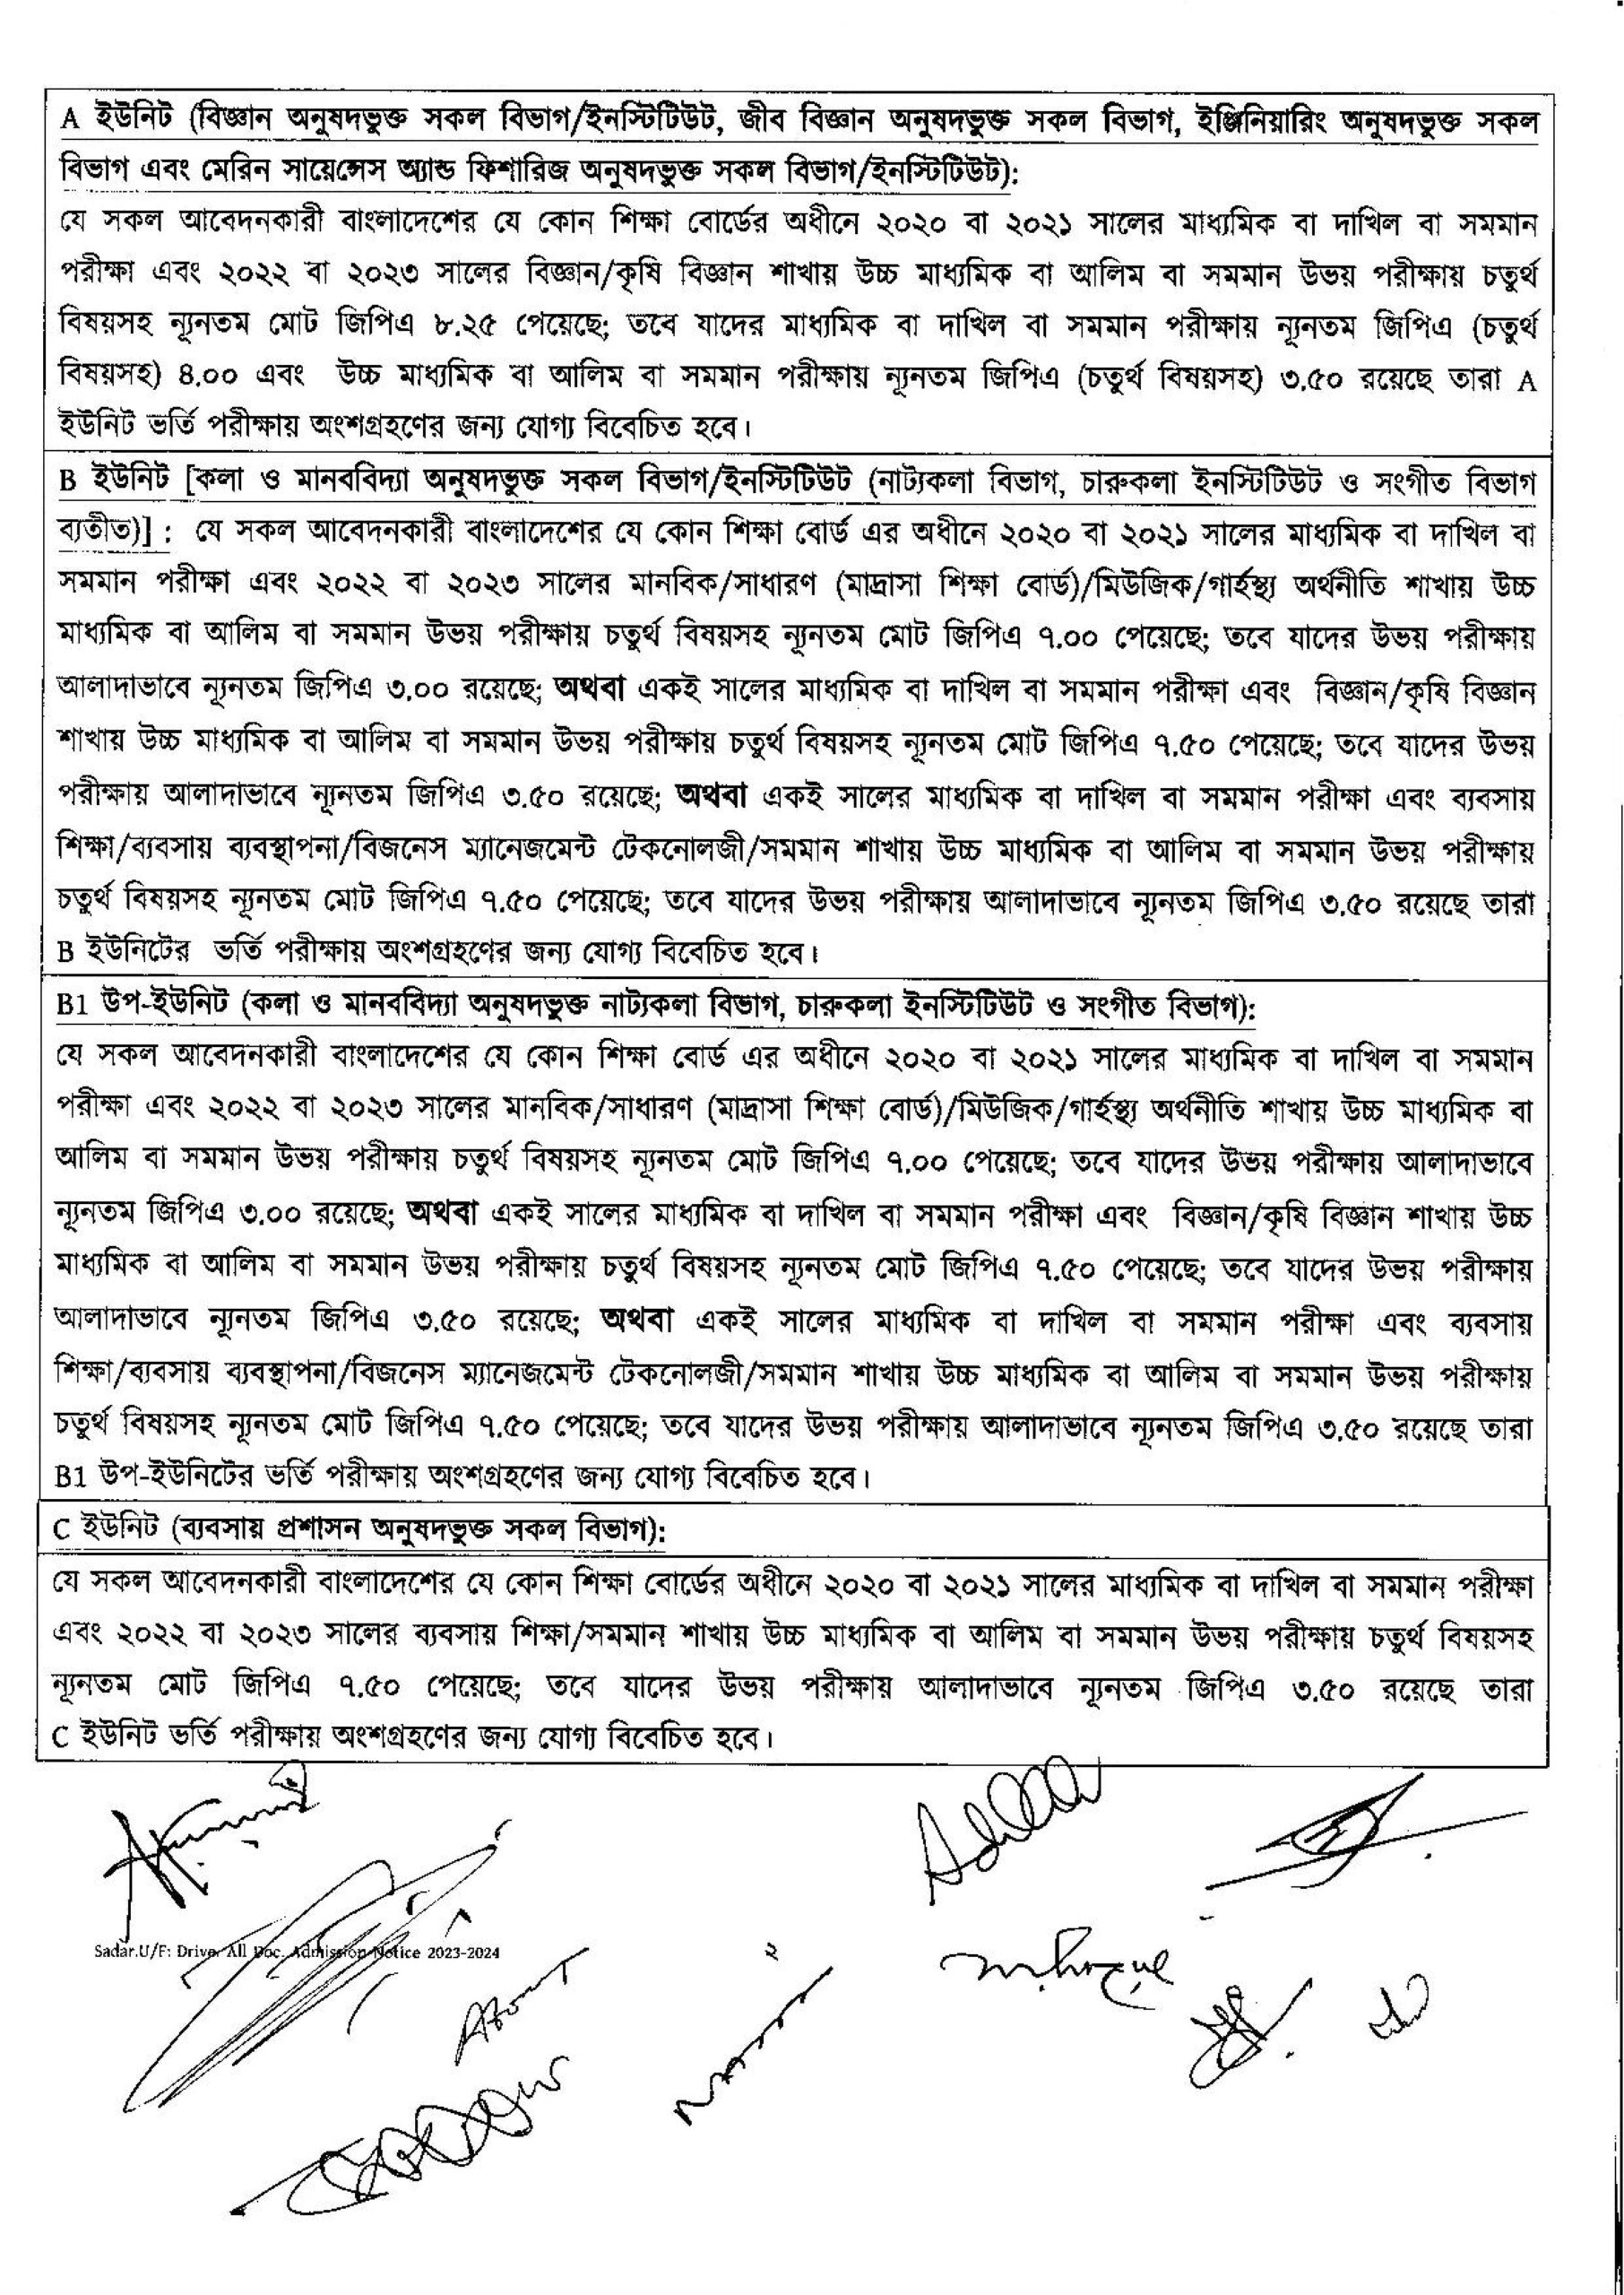 A ইউনিট (বিজ্ঞান অনুষদভুক্ত সকল বিভাগ/ইনস্টিটিউট, জীব বিজ্ঞান অনুষদভুক্ত সকল বিভাগ, ইঞ্জিনিয়ারিং অনুষদভুক্ত সকল
বিভাগ এবং মেরিন সায়েন্সেস অ্যান্ড ফিশারিজ অনুষদভুক্ত সকল বিভাগ/ইনস্টিটিউট):
যে সকল আবেদনকারী বাংলাদেশের যে কোন শিক্ষা বোর্ডের অধীনে ২০২০ বা ২০২১ সালের মাধ্যমিক বা দাখিল বা সমমান
পরীক্ষা এবং ২০২২ বা ২০২৩ সালের বিজ্ঞান/কৃষি বিজ্ঞান শাখায় উচ্চ মাধ্যমিক বা আলিম বা সমমান উভয় পরীক্ষায় চতুর্থ
বিষয়সহ ন্যূনতম মোট জিপিএ ৮.২৫ পেয়েছে; তবে যাদের মাধ্যমিক বা দাখিল বা সমমান পরীক্ষায় ন্যূনতম জিপিএ (চতুর্থ
বিষয়সহ) ৪.০০ এবং উচ্চ মাধ্যমিক বা আলিম বা সমমান পরীক্ষায় ন্যূনতম জিপিএ (চতুর্থ বিষয়সহ) ৩.৫০ রয়েছে তারা A
ইউনিট ভর্তি পরীক্ষায় অংশগ্রহণের জন্য যোগ্য বিবেচিত হবে।
B ইউনিট [কলা ও মানববিদ্যা অনুষদভুক্ত সকল বিভাগ/ইনস্টিটিউট (নাট্যকলা বিভাগ, চারুকলা ইনস্টিটিউট ও সংগীত বিভাগ
ব্যতীত)] : যে সকল আবেদনকারী বাংলাদেশের যে কোন শিক্ষা বোর্ড এর অধীনে ২০২০ বা ২০২১ সালের মাধ্যমিক বা দাখিল বা
সমমান পরীক্ষা এবং ২০২২ বা ২০২৩ সালের মানবিক/সাধারণ (মাদ্রাসা শিক্ষা বোর্ড)/মিউজিক/গার্হস্থ্য অর্থনীতি শাখায় উচ্চ
মাধ্যমিক বা আলিম বা সমমান উভয় পরীক্ষায় চতুর্থ বিষয়সহ ন্যূনতম মোট জিপিএ ৭.০০ পেয়েছে; তবে যাদের উভয় পরীক্ষায়
আলাদাভাবে ন্যূনতম জিপিএ ৩.০০ রয়েছে; অথবা একই সালের মাধ্যমিক বা দাখিল বা সমমান পরীক্ষা এবং বিজ্ঞান/কৃষি বিজ্ঞান
শাখায় উচ্চ মাধ্যমিক বা আলিম বা সমমান উভয় পরীক্ষায় চতুর্থ বিষয়সহ ন্যূনতম মোট জিপিএ ৭.৫০ পেয়েছে; তবে যাদের উভয়
পরীক্ষায় আলাদাভাবে ন্যূনতম জিপিএ ৩.৫০ রয়েছে; অথবা একই সালের মাধ্যমিক বা দাখিল বা সমমান পরীক্ষা এবং ব্যবসায়
শিক্ষা/ব্যবসায় ব্যবস্থাপনা/বিজনেস ম্যানেজমেন্ট টেকনোলজী/সমমান শাখায় উচ্চ মাধ্যমিক বা আলিম বা সমমান উভয় পরীক্ষায়
চতুর্থ বিষয়সহ ন্যূনতম মোট জিপিএ ৭.৫০ পেয়েছে; তবে যাদের উভয় পরীক্ষায় আলাদাভাবে ন্যূনতম জিপিএ ৩.৫০ রয়েছে তারা
B ইউনিটের ভর্তি পরীক্ষায় অংশগ্রহণের জন্য যোগ্য বিবেচিত হবে।
B1 উপ-ইউনিট (কলা ও মানববিদ্যা অনুষদভুক্ত নাট্যকলা বিভাগ, চারুকলা ইনস্টিটিউট ও সংগীত বিভাগ):
যে সকল আবেদনকারী বাংলাদেশের যে কোন শিক্ষা বোর্ড এর অধীনে ২০২০ বা ২০২১ সালের মাধ্যমিক বা দাখিল বা সমমান
পরীক্ষা এবং ২০২২ বা ২০২৩ সালের মানবিক/সাধারণ (মাদ্রাসা শিক্ষা বোর্ড)/মিউজিক/গার্হস্থ্য অর্থনীতি শাখায় উচ্চ মাধ্যমিক বা
আলিম বা সমমান উভয় পরীক্ষায় চতুর্থ বিষয়সহ ন্যূনতম মোট জিপিএ ৭.০০ পেয়েছে; তবে যাদের উভয় পরীক্ষায় আলাদাভাবে
ন্যূনতম জিপিএ ৩.০০ রয়েছে; অথবা একই সালের মাধ্যমিক বা দাখিল বা সমমান পরীক্ষা এবং বিজ্ঞান/কৃষি বিজ্ঞান শাখায় উচ্চ
মাধ্যমিক বা আলিম বা সমমান উভয় পরীক্ষায় চতুর্থ বিষয়সহ ন্যূনতম মোট জিপিএ ৭.৫০ পেয়েছে; তবে যাদের উভয় পরীক্ষায়
আলাদাভাবে ন্যূনতম জিপিএ ৩.৫০ রয়েছে; অথবা একই সালের মাধ্যমিক বা দাখিল বা সমমান পরীক্ষা এবং ব্যবসায়
শিক্ষা/ব্যবসায় ব্যবস্থাপনা/বিজনেস ম্যানেজমেন্ট টেকনোলজী/সমমান শাখায় উচ্চ মাধ্যমিক বা আলিম বা সমমান উভয় পরীক্ষায়
চতুর্থ বিষয়সহ ন্যূনতম মোট জিপিএ ৭.৫০ পেয়েছে; তবে যাদের উভয় পরীক্ষায় আলাদাভাবে ন্যূনতম জিপিএ ৩.৫০ রয়েছে তারা
B1 উপ-ইউনিটের ভর্তি পরীক্ষায় অংশগ্রহণের জন্য যোগ্য বিবেচিত হবে।
C ইউনিট (ব্যবসায় প্রশাসন অনুষদভুক্ত সকল বিভাগ):
যে সকল আবেদনকারী বাংলাদেশের যে কোন শিক্ষা বোর্ডের অধীনে ২০২০ বা ২০২১ সালের মাধ্যমিক বা দাখিল বা সমমান পরীক্ষা
এবং ২০২২ বা ২০২৩ সালের ব্যবসায় শিক্ষা/সমমান শাখায় উচ্চ মাধ্যমিক বা আলিম বা সমমান উভয় পরীক্ষায় চতুর্থ বিষয়সহ
ন্যূনতম মোট জিপিএ ৭.৫০ পেয়েছে; তবে যাদের উভয় পরীক্ষায় আলাদাভাবে ন্যূনতম জিপিএ ৩.৫০ রয়েছে তারা
C ইউনিট ভর্তি পরীক্ষায় অংশগ্রহণের জন্য যোগ্য বিবেচিত হবে।
Sadar.U/F: Drive. All Doc. Admission Notice 2023-2024
২